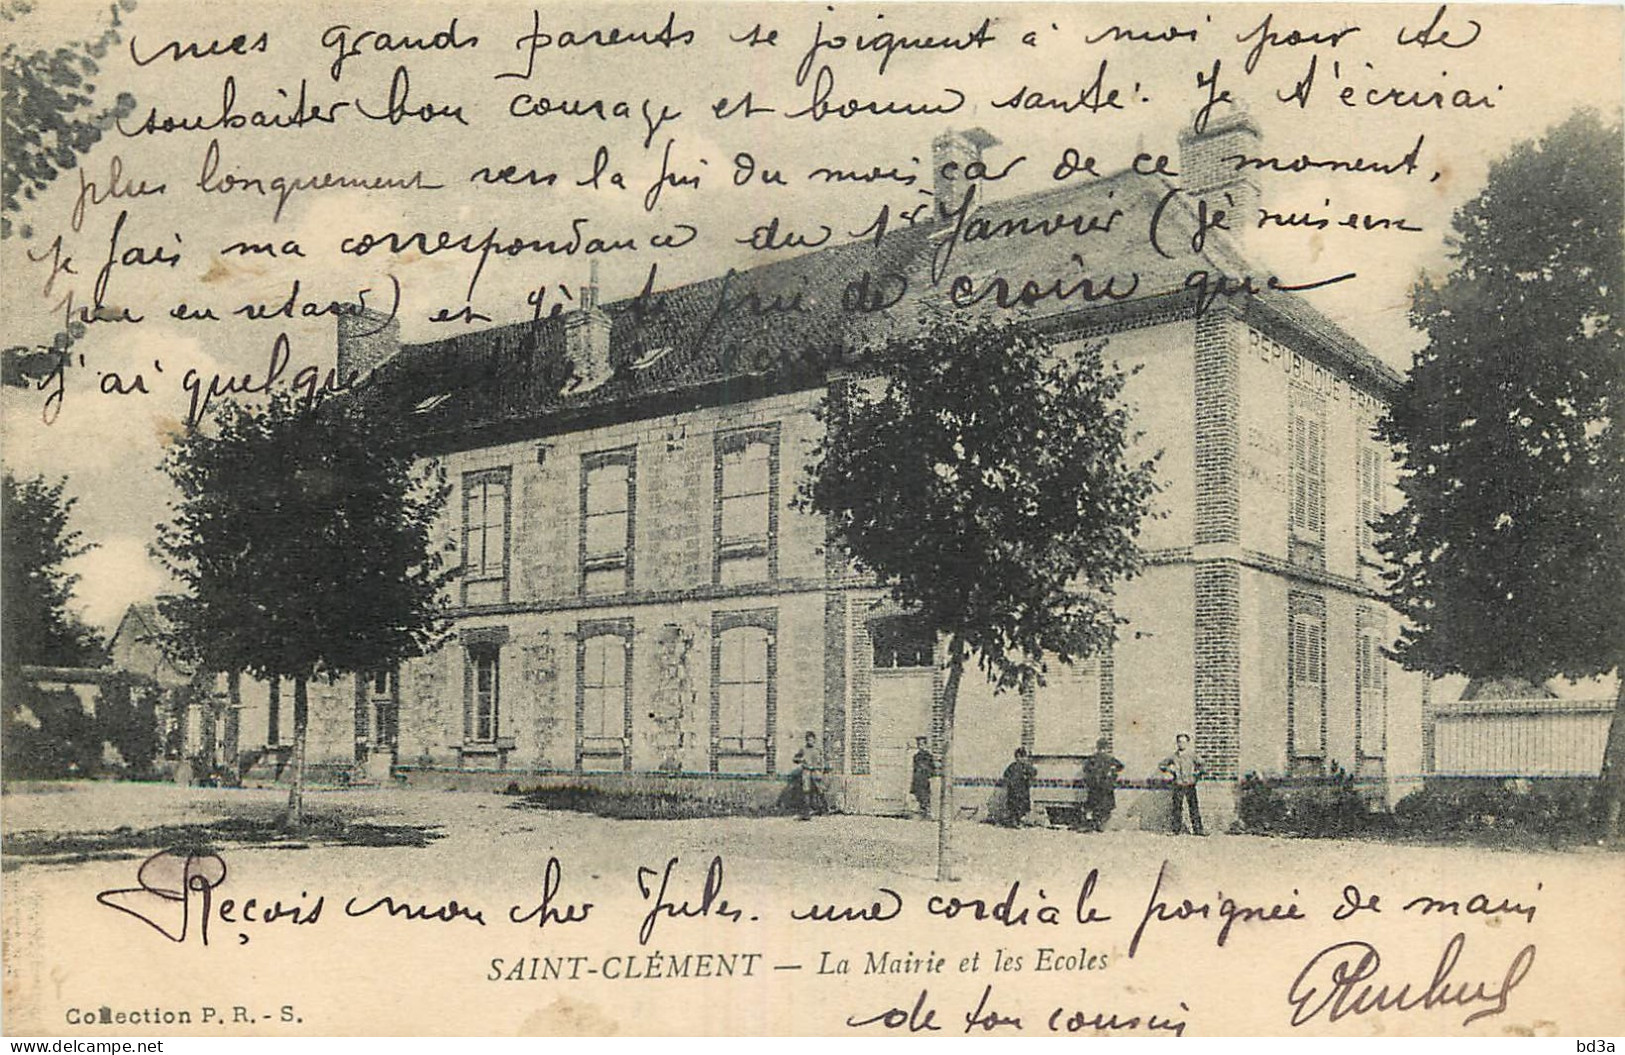 mes grands parents se joignent à moi pour te
souhaiter bon courage et bonne santé. Je t'écrirai
plus longuement vers la fin du mois car de ce moment,
je fais ma correspondance du 1er Janvier (je suis
peu en retard) et je te prie de croire que
j'ai quelques
REPUBLIQUE FRAN
Reçois mon cher Jules. une cordiale poignée de main
SAINT-CLÉMENT — La Mairie et les Ecoles
de ton cousin
Collection P. R. - S.
bd3a